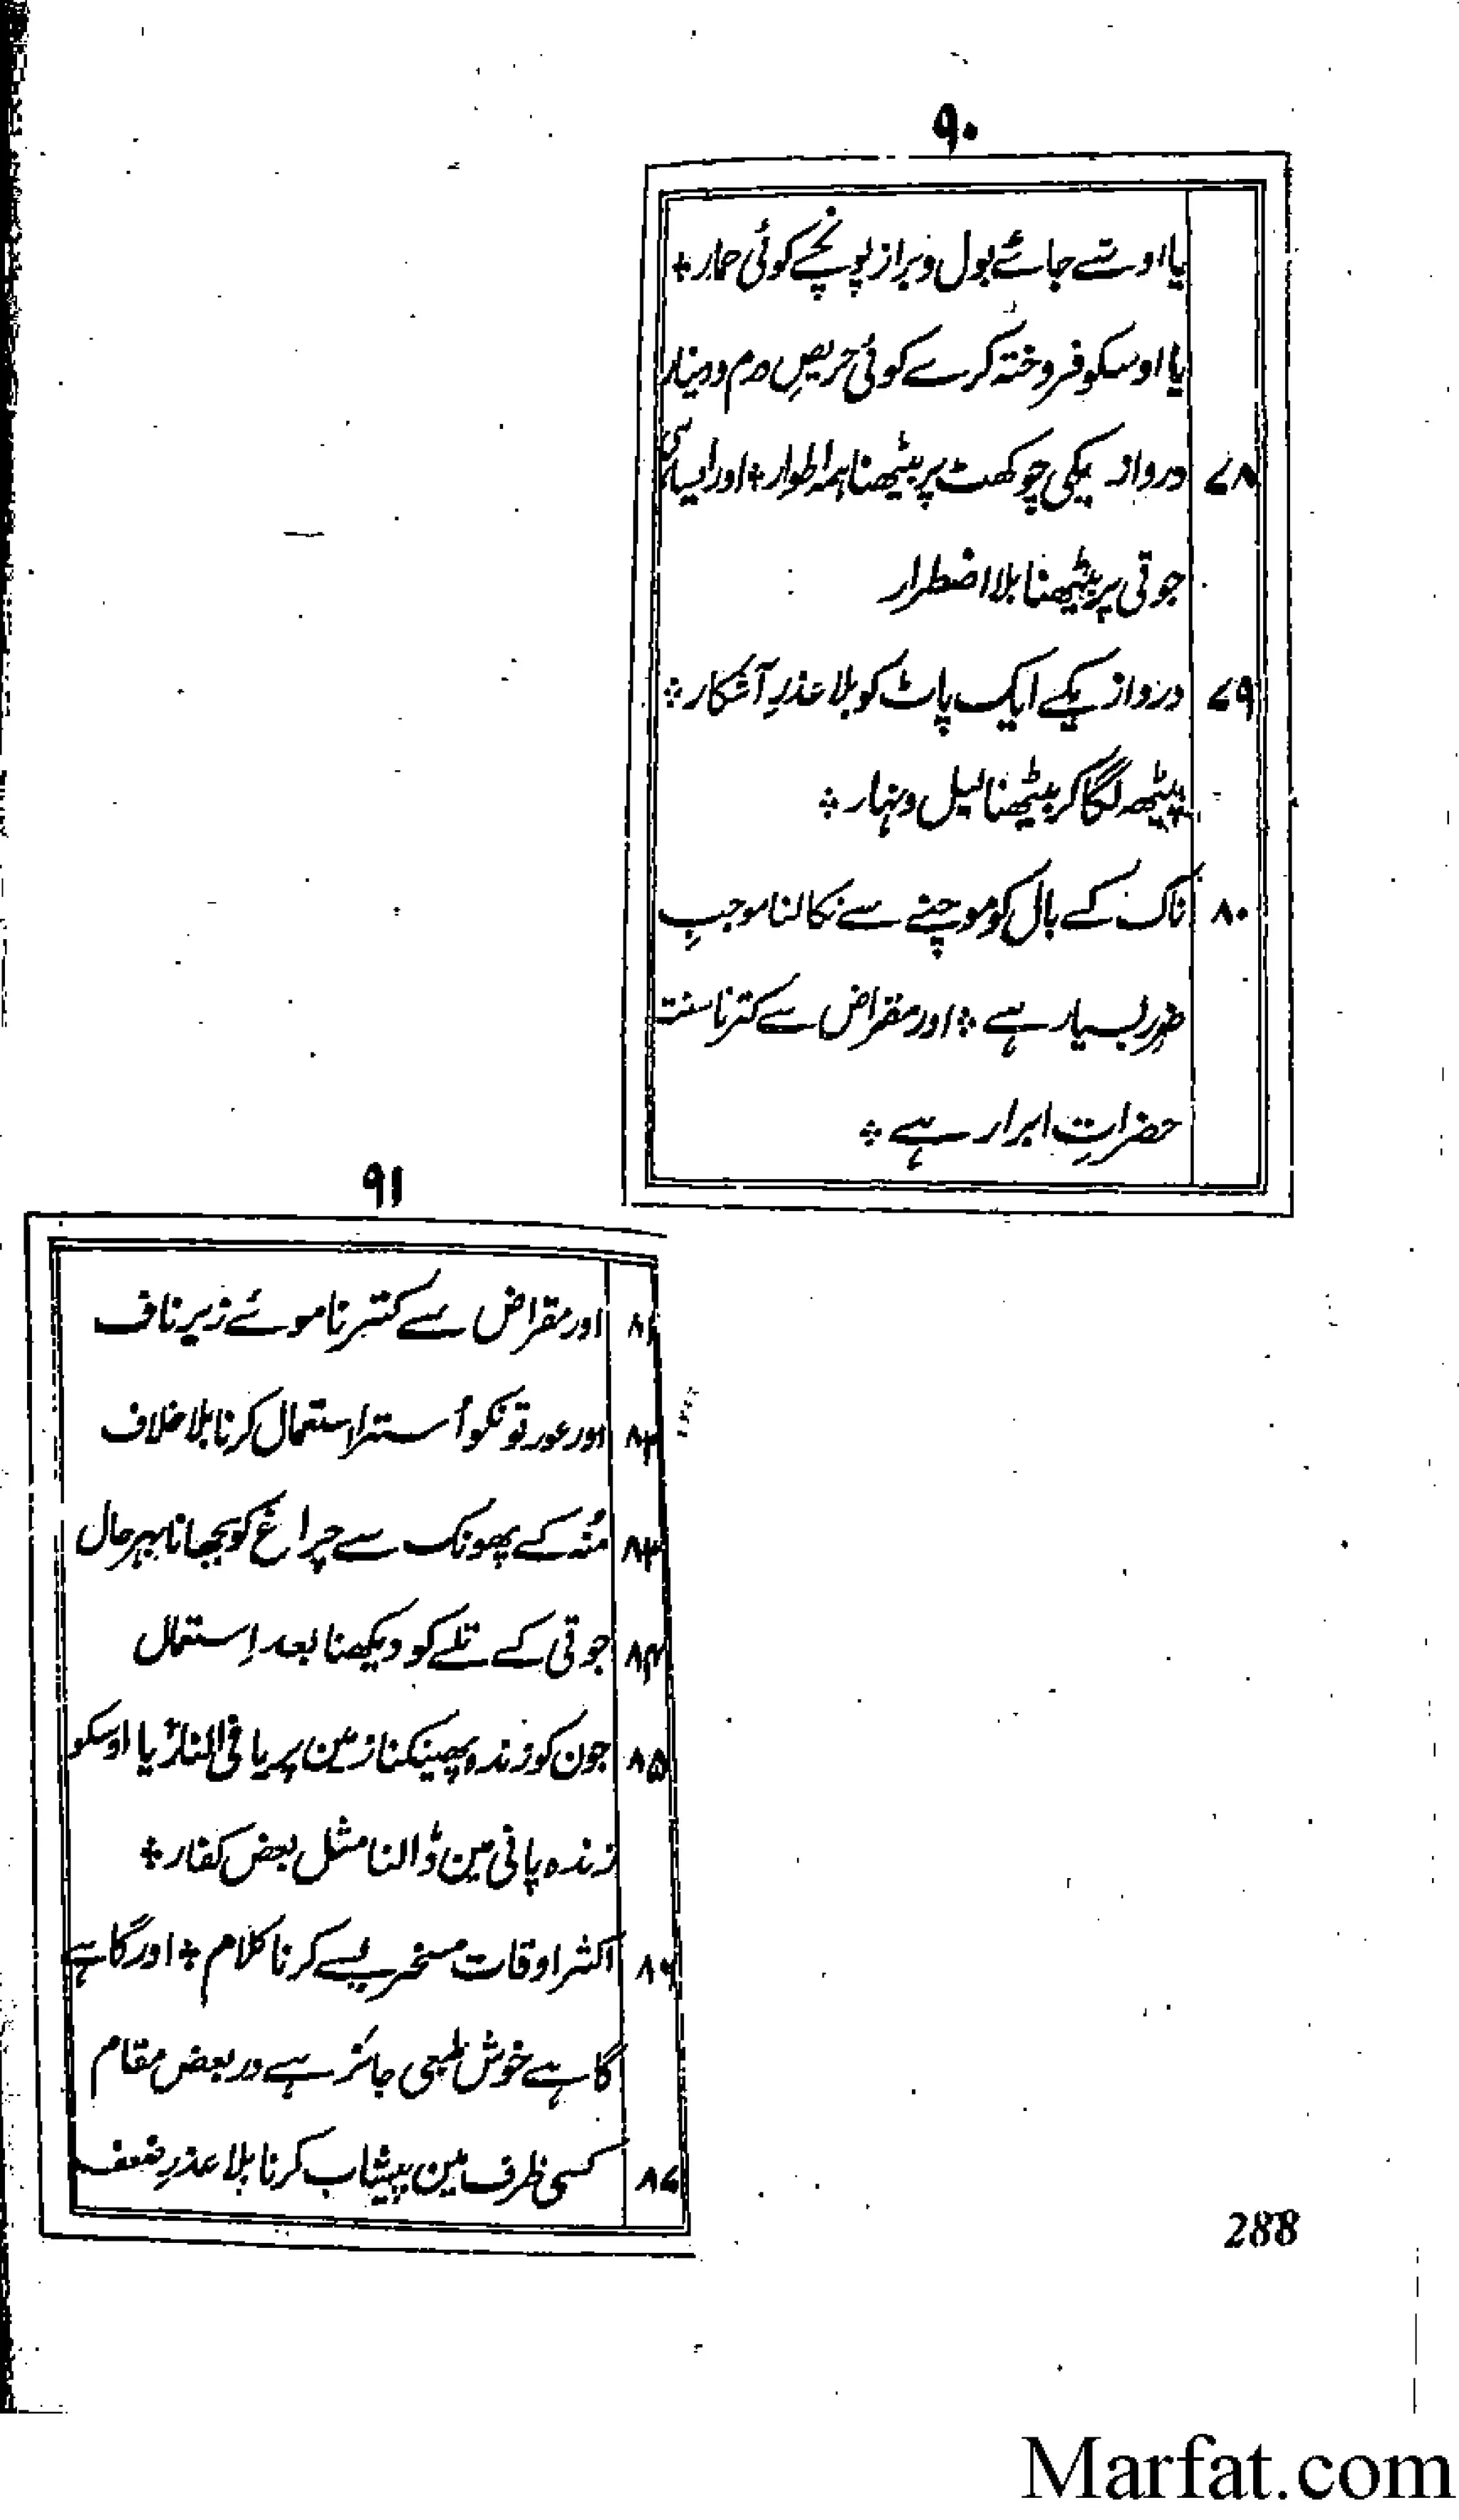 ۹۰
یا اوسے جائے بول و براز پونچے کوئی حمار ؞
یا اوسکو فروختہ کرے کوئی حریصِ درم و دینار
۷۸ دروازیکی چوکھٹ پر بیٹھنا بہمہ اطوار ؞ اور ایسا ہی
جوتی پر بیٹھنا بلا اضطرار
۷۹ دروازیکے ایک پاٹ کو بلا عذرِ آشکار ؞
پیٹھ لگا کر بیٹھنا لیل و نہار ؞
۸۰ ناک کے بال کو موچنے سے نکالنا موجبِ
ضررِ بسیار ہے ؞ اور مقراض سے کترنا سنت
حضراتِ ابرار ہے ؞
۹۱
۸۱ اور مقراض سے کترنا موئے زیر ناف
۸۲ اور عورتونکو اُسترا استعمال کرنا بلا خلاف
۸۳ مُنہ کے پھونک سے چراغ کو بجھانا بہر حال
۸۴ جوتی کے تلے کو دیکھنا بعد اِستعمال
۸۵ جون کو زندہ پھینکنا زمین پر یا فی النار یا اوسکو
زندہ پانی مین ڈالنا مثل بعض کفار ؞
۸۶ اکثر اوقات مسخریسے کرنا کلام ؞ اور گاہے
گاہے خوش طبعی جائز ہے در بعض مقام
۸۷ کسی ظرف مین پیشاب کرنا بلا عذرِ ضعف
288
Marfat.com